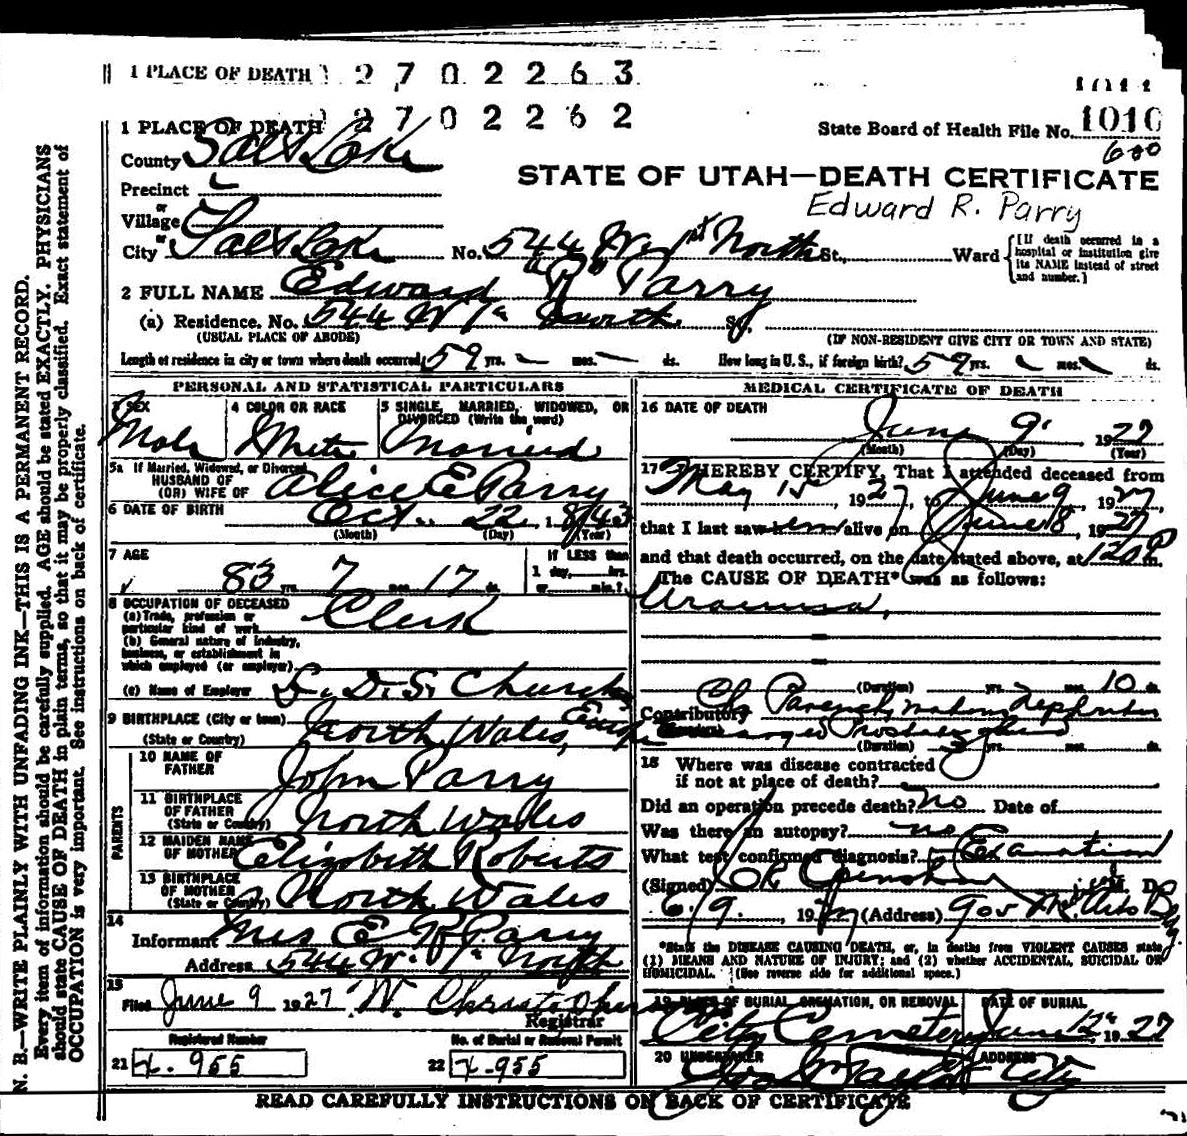 1 PLACE OF DEATH 2702263
1 PLACE OF DEATH 2702262
1010
State Board of Health File No.
600
County Salt Lake
STATE OF UTAH—DEATH CERTIFICATE
Edward R. Parry
Precinct
or
Village
or
City Salt Lake No. 544 W 1st North St., Ward
[If death occurred in a hospital or institution give its NAME instead of street and number.]
2 FULL NAME Edward "R" Parry
(a) Residence. No. 544 W 1st North St.
(USUAL PLACE OF ABODE) (IF NON-RESIDENT GIVE CITY OR TOWN AND STATE)
Length of residence in city or town where death occurred 59 yrs. mos. ds. How long in U. S., if foreign birth? 59 yrs. mos. ds.
PERSONAL AND STATISTICAL PARTICULARS
3 SEX 4 COLOR OR RACE 5 SINGLE, MARRIED, WIDOWED, OR DIVORCED (Write the word)
Male White Married
5a If Married, Widowed, or Divorced
HUSBAND OF
(OR) WIFE OF Alice E Parry
6 DATE OF BIRTH Oct. 22 1843
(Month) (Day) (Year)
7 AGE If LESS than
83 yrs. 7 mos. 17 ds. 1 day, hrs.
or min.?
8 OCCUPATION OF DECEASED
(a) Trade, profession or
particular kind of work Clerk
(b) General nature of industry,
business, or establishment in
which employed (or employer)
(c) Name of Employer L. D. S. Church
9 BIRTHPLACE (City or town)
(State or Country) North Wales,
PARENTS
10 NAME OF
FATHER John Parry
11 BIRTHPLACE
OF FATHER
(State or Country) North Wales
12 MAIDEN NAME
OF MOTHER Elizabeth Roberts
13 BIRTHPLACE
OF MOTHER
(State or Country) North Wales
14
Informant Mrs E R Parry
Address 544 W. 1st North
15
Filed June 9 1927 W. Christopherson
Registrar
Registered Number No. of Burial or Removal Permit
21 X-955 22 X-955
MEDICAL CERTIFICATE OF DEATH
16 DATE OF DEATH
June 9 1927
(Month) (Day) (Year)
17 I HEREBY CERTIFY, That I attended deceased from
May 15 1927, to June 9 1927,
that I last saw him alive on June 8, 1927
and that death occurred, on the date stated above, at 120 P m.
The CAUSE OF DEATH* was as follows:
Uraemia,
(Duration) yrs. mos. 10 ds.
Contributory Ch Parenchymatous Nephritis
Enlarged Prostate gland
(Duration) yrs. mos. ds.
18 Where was disease contracted
if not at place of death?
Did an operation precede death? no Date of
Was there an autopsy? no
What test confirmed diagnosis? Examation
(Signed) M. D.
6/9, 1927 (Address)
*State the DISEASE CAUSING DEATH, or, in deaths from VIOLENT CAUSES state
(1) MEANS AND NATURE OF INJURY; and (2) whether ACCIDENTAL, SUICIDAL OR
HOMICIDAL. (See reverse side for additional space.)
19 PLACE OF BURIAL, CREMATION, OR REMOVAL DATE OF BURIAL
City Cemetery June 12 1927
20 UNDERTAKER ADDRESS
City
READ CAREFULLY INSTRUCTIONS ON BACK OF CERTIFICATE
N. B.—WRITE PLAINLY WITH UNFADING INK—THIS IS A PERMANENT RECORD.
Every item of information should be carefully supplied. AGE should be stated EXACTLY. PHYSICIANS
should state CAUSE OF DEATH in plain terms, so that it may be properly classified. Exact statement of
OCCUPATION is very important. See instructions on back of certificate.